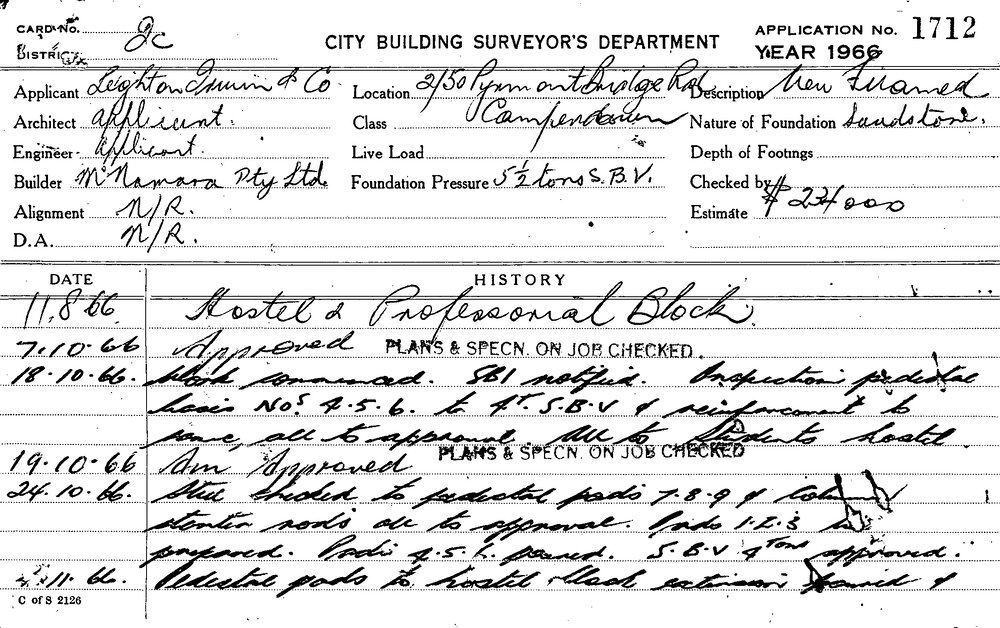 CARD No. 2c
DISTRICT
CITY BUILDING SURVEYOR'S DEPARTMENT
APPLICATION No. 1712
YEAR 1966
Applicant Leighton Irwin & Co Location 2/50 Pyrmont Bridge Rd Description New Framed
Architect applicant. Class Camperdown Nature of Foundation Sandstone.
Engineer applicant. Live Load Depth of Footings
Builder McNamara Pty Ltd. Foundation Pressure 5½ tons S.B.V. Checked by
Alignment N/R. Estimate $ 224000
D.A. N/R.
DATE HISTORY
11.8.66. Hostel & Professorial Block.
7.10.66 Approved PLANS & SPECN. ON JOB CHECKED.
18.10.66. Work commenced. SBI notified. Inspection pedestal
basis Nos. 4.5.6. to 4T. S.B.V & reinforcement to
same, all to approval. All to Students hostel.
19.10.66 Am Approved PLANS & SPECN. ON JOB CHECKED
24.10.66. Steel checked to pedestal pads 7.8.9 & column
starter rods all to approval. Pads 1.2.3
prepared. Pads 4.5.6. poured. S.B.V 4Tons approved.
11.66. Pedestal pads to hostel block extension poured &
C of S 2126